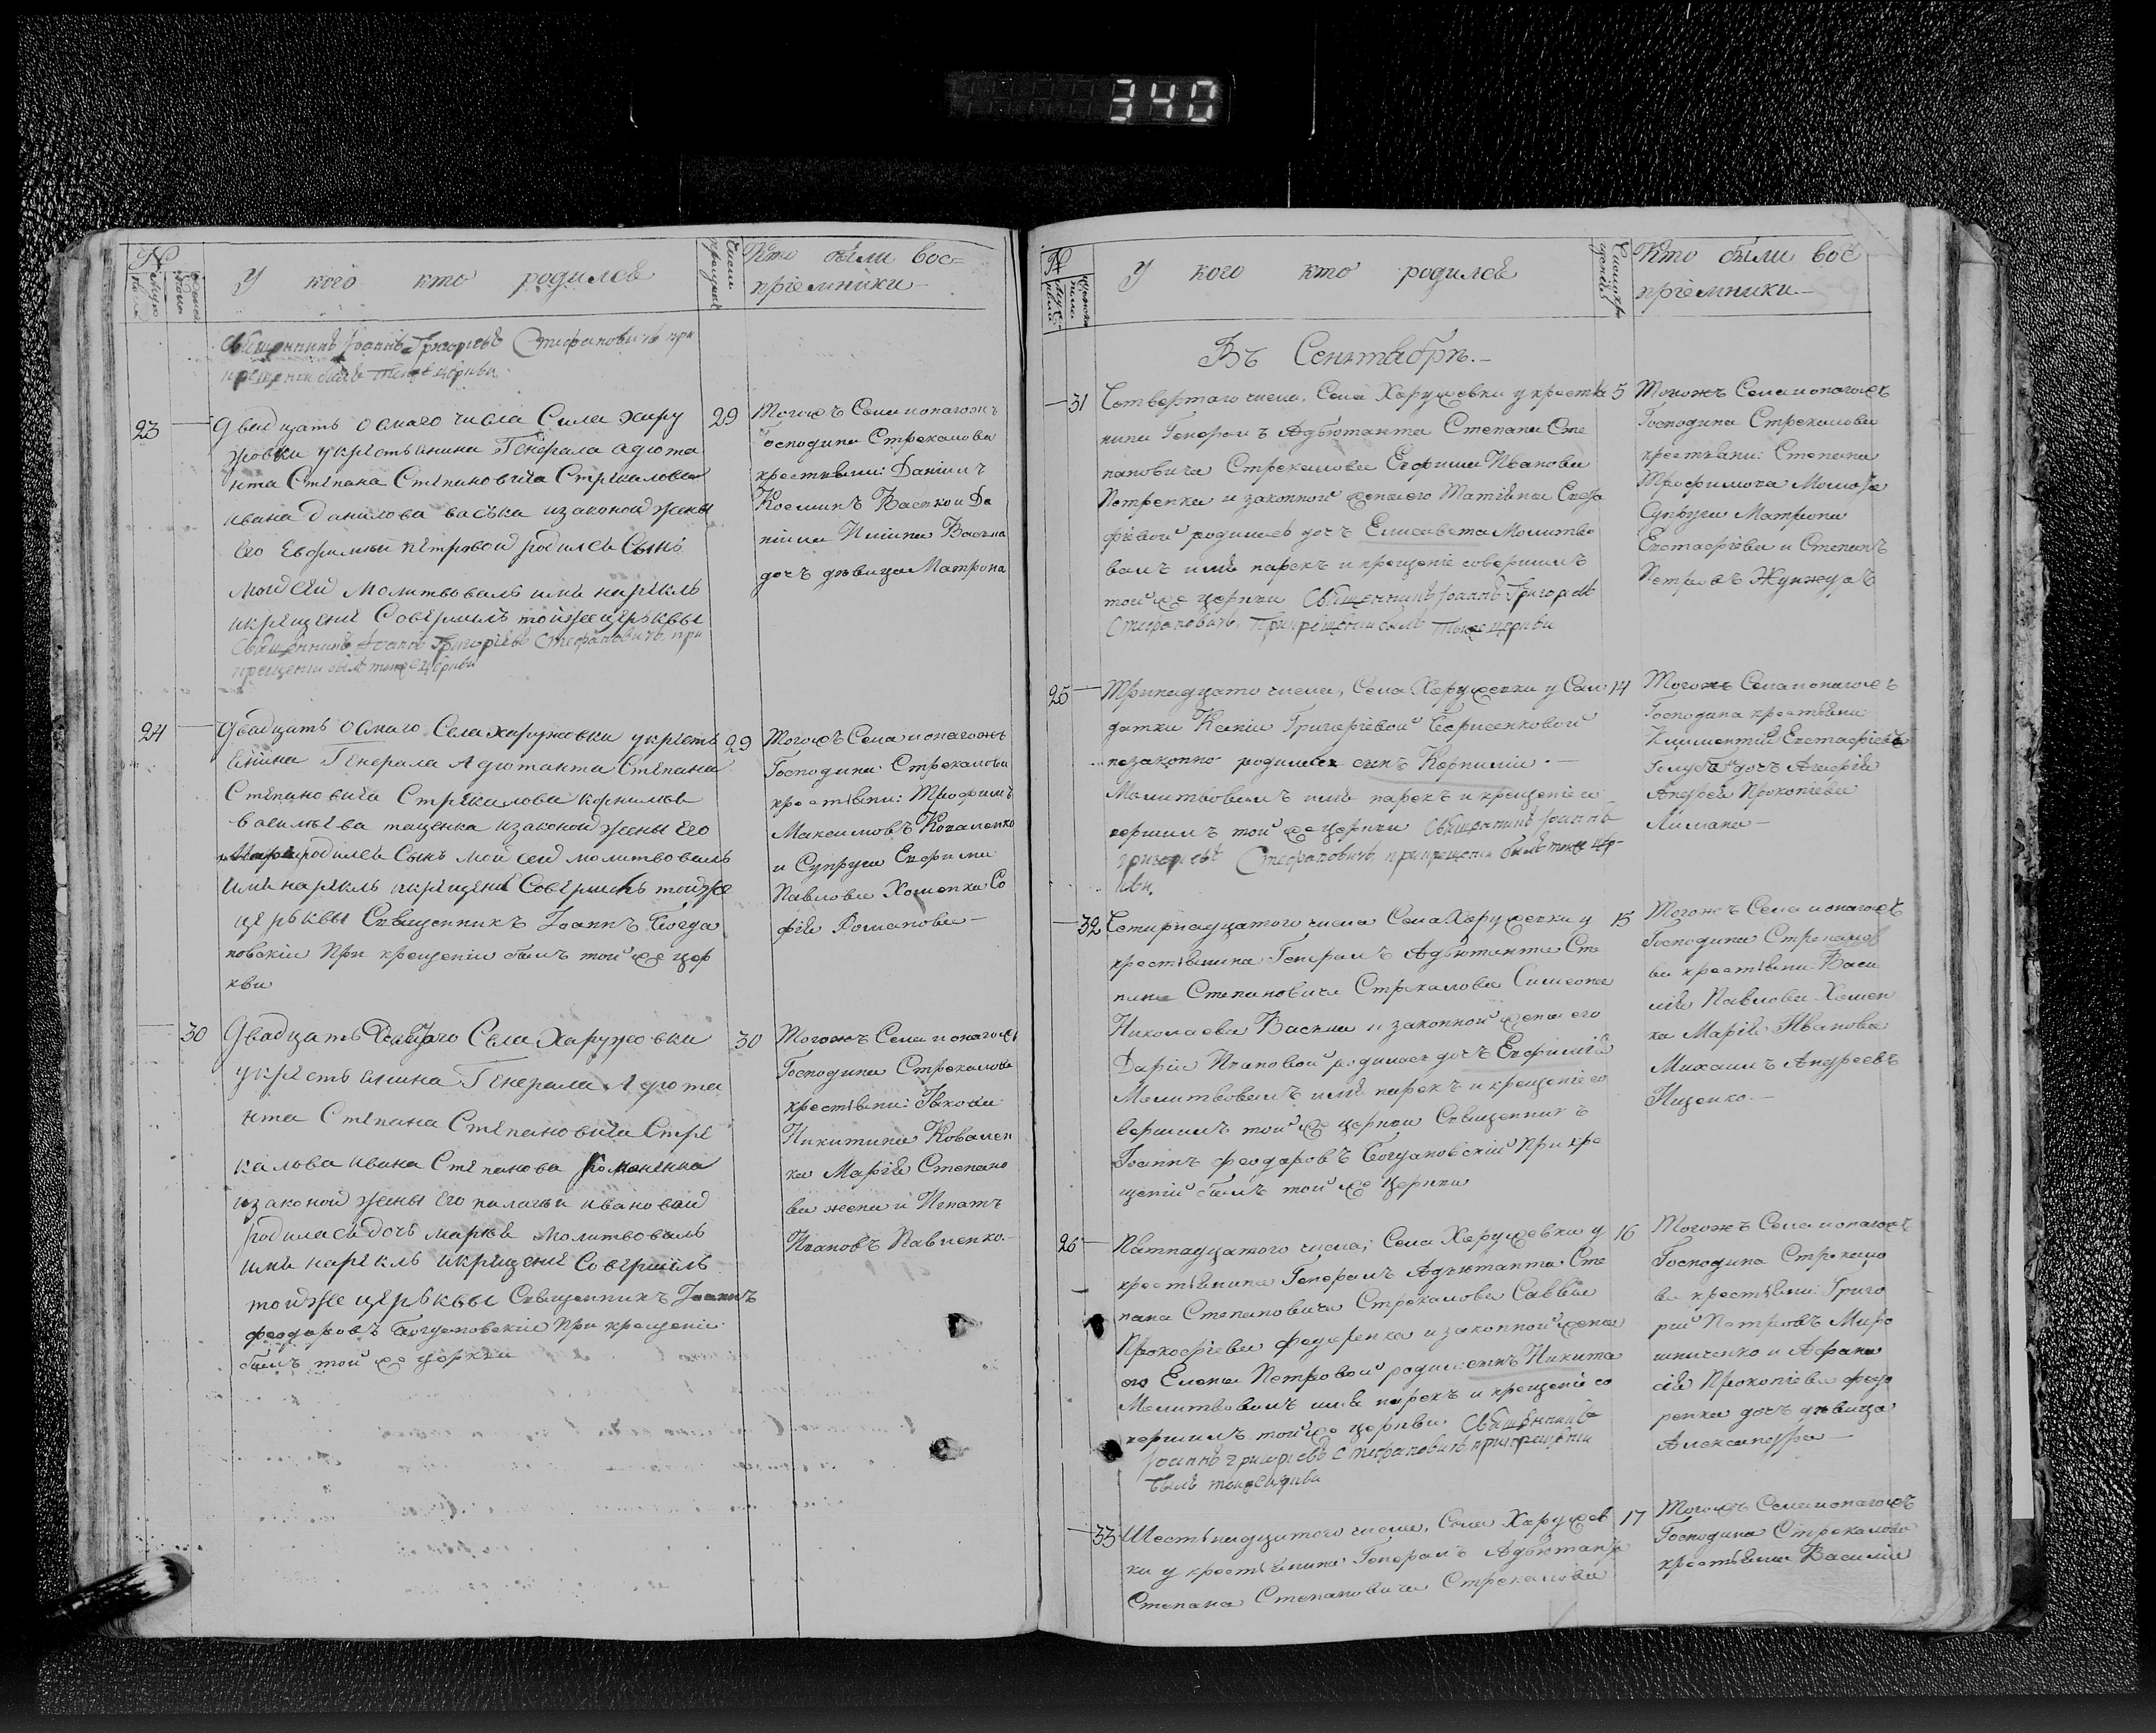 340
№
У кого кто родился
Кто были вос=
пріемники
Священникъ Іоаннъ Григорьевъ Стефановичъ при
крещеніи былъ тойже церкви
23
Двадцать осмаго числа Села Хару
29
жовки укрестьянина Генерала адюта
нта Степана Степановича Стрекалова
ивана данилова васька изаконой жены
Его Евфимьи петровой родился Сынъ
мойсей молитвовалъ имя нарекль
икрещение Совершилъ тойже церьквы
Священникъ Іоаннъ Григорьевъ Стефановичъ при
крещеніи былъ тойже церкви
Тогожъ Села ионагожъ
Господина Стрекалова
крестьяни: Даніилъ
Косминъ Васькои Да
ніила Ивана Васька
дочь девица Матрона
24
Двадцать осмаго Села харужовки укресть
29
янина Генерала Адютанта Степана
Степановича Стрекалова корнилья
васильева таценка изаконой жены Его
родился Сынъ мойсей молитвовалъ
имя нарекль икрещение Совершилъ тойже
церьквы Священникъ Іоаннъ Богда
новскій При крещеніи былъ той же цер
кви
Тогожъ Села ионагожъ
Господина Стрекалова
крестьяни: Трофимъ
Максимовъ Коваленко
и Супруга Евфими
Павлова Хоменка Со
фія Романова
30
Двадцать Села Харужовки
30
укрестьянина Генерала Адюта
нта Степана Степановича Стре
калова ивана Степанова
изаконой жены Его палагьи ивановой
родиласьдочь марья молитвовалъ
имя нарекль икрещение Совершилъ
тойже церьквы Священникъ Іоаннъ
феодоровъ Богдановскій При крещеніи
былъ той же церкви
Тогожъ Села ионагожъ
Господина Стрекалова
крестьяни: Якова
Никитина Ковален
ка Марія Степано
ва жена и Игнатъ
Ивановъ Павленко.
№
У кого кто родился
Кто были вос
пріемники
Въ Сентябрѣ.
31
Четвертаго числа, Села Харужовки у крестья
5
нина Генералъ Адъютанта Степана Сте
пановича Стрекалова Евфима Иванова
Петренка и законной жены его Татіяны Евста
фіевой родилась дочь Елисавета Молитво
валъ имя нарекъ и крещеніе совершилъ
той же церкви Священникъ Іоаннъ Григорьевъ
Стефановичъ. При крещеніи былъ тойже церкви
Тогожъ Села ионагожъ
Господина Стрекалова
крестьяни: Степана
Трофимова
Супруга Матрона
Евстафіева и Степанъ
Петровъ Жунжура
25
Тринадцато числа, Села Харужевки у Сал
14
датки Ксеніи Григоріевой Борисенковой
незаконно родился сынъ Корнилій.
Молитвовалъ имя нарекъ и крещеніе со
вершилъ той же церкви Священникъ Іоаннъ
Григорьевъ Стефановичъ, при крещеніи былъ тойже цер
кви.
Тогожъ Села ионагожъ
Господина крестьяни
Климентій Евстафіевъ
Голуба дочь
Андрея Прокопіева
Лимана
32
Четирнадцатого числа Села Харужевки у
15
крестьянина Генералъ Адъютанта Сте
пана Степановича Стрекалова Симеона
Николаева Васька и законной жены его
Даріи Ивановой родилась дочь Евфимія
Молитвовалъ имя нарекъ и крещеніе со
вершилъ той же церкви Священникъ
Іоаннъ феодоровъ Богдановскій При кре
щеніи былъ той же церкви
Тогожъ Села ионагожъ
Господина Стрекалов
ва крестьяни: Васи
лія Павлова Хомен
ка Марія Иванова
Михаилъ Андреевъ
Ищенко.
26
Пятнадцатого числа, Села Харужевки у
16
крестьянина Генералъ Адъютанта Сте
пана Степановича Стрекалова Саввы
Прокофіева Федоренка и законной жены
его Елены Петровой родился сынъ Никита
Молитвовалъ имя нарекъ и крещеніе со
вершилъ той же церкви. Священникъ
Іоаннъ Григорьевъ Стефановичъ при крещеніи
былъ тойже церкви
Тогожъ Села ионагожъ
Господина Стрекало
ва крестьяни: Григо
рій Петровъ Миро
шниченко и Афана
сія Прокопіева федо
ренка дочь девица
Александра
33
Шестьнадцатого числа, Села Харужев
17
ки у крестьянина Генералъ Адъютанта
Степана Степановича Стрекалова
Тогожъ Села ионагожъ
Господина Стрекалова
крестьяни Василій